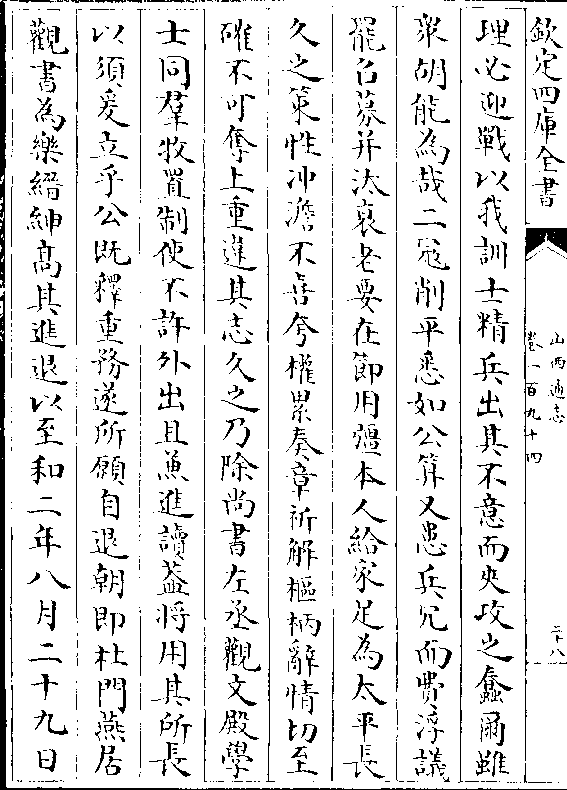 欽定四庫全書
山西通志
卷一百九十四
二十八
理必迎戰以我訓士精兵出其不意而夾攻之蠢爾雖
衆胡能為哉二冦削平悉如公算又患兵冗而費浮議
罷召募并汰衰老要在節用彊本人給家足為太平長
久之策性冲澹不喜兮權累奏章祈解樞柄辭情切至
確不可奪上重違其志久之乃除尚書左丞觀文殿學
士同羣牧置制使不許外出且兼進讀葢將用其所長
以須爰立乎公既釋重務遂所願自退朝即杜門燕居
觀書為樂縉紳高其進退以至和二年八月二十九日